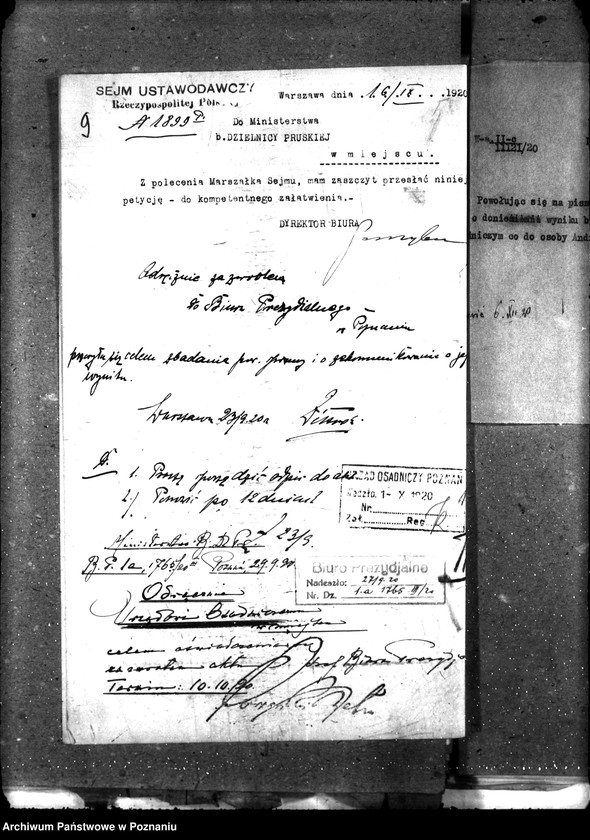 SEJM USTAWODAWCZY
Rzeczypospolitej
Warszawa dnia . 16/IX. . . 1920
9
A 1899
Do Ministerstwa
b.DZIELNICY PRUSKIEJ
w miejscu.
Z polecenia Marszałka Sejmu, mam zaszczyt przesłać niniej
petycję - do kompetentnego załatwienia.-
DYREKTOR BIURA
Odręcznie za zwrotem
do Biura Prezydialnego
w Poznaniu
celem zbadania por. sprawy i o zakomunikowanie o
wyniku.
Warszawa 23/9.20
1. Proszę
2.) Ponowić po 12 dniach
23/9.
B. P. 1a, 1765/20 Poznań, 29.9.20
URZĄD OSADNICZY POZNAŃ
Nadeszło. 1- X 1920
Nr.
Zał. Reg
Biuro Prezydjalne
Nadeszło: 27/9.20
Nr. Dz. 1.a 1765 III/20
Odręcznie
Urzędowi Osadniczemu
w miejscu
celem
za zwrotem akt
Szef Biura Prezydj
Termin: 10.10.20
II-c
11121/20
Powołując się na pism
o doniesienie wyniku b
niczym co do osoby And
6. XII 20
Archiwum Państwowe w Poznaniu